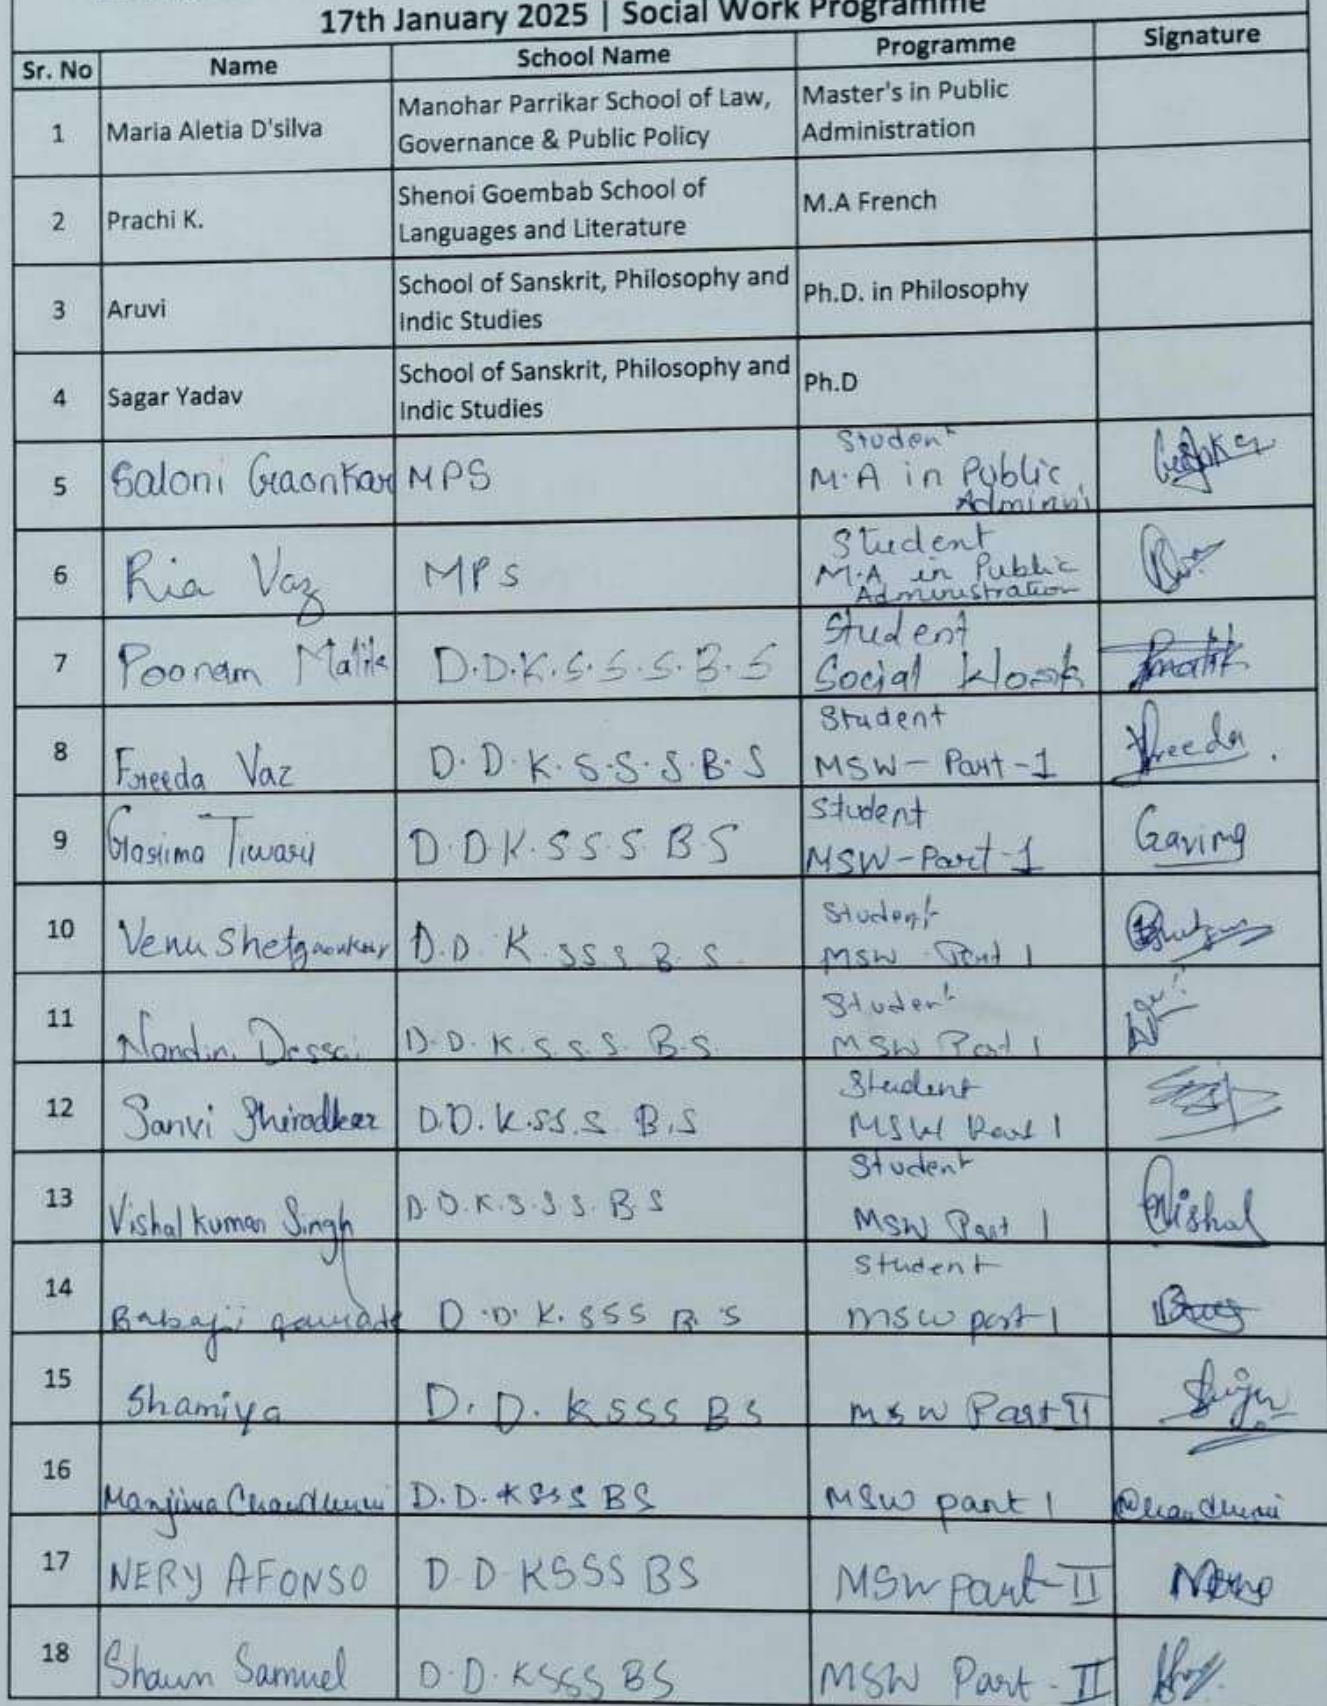 17th January 2025 | Social Work Programme
Sr. No Name School Name Programme Signature
1 Maria Aletia D'silva Manohar Parrikar School of Law, Governance & Public Policy Master's in Public Administration
2 Prachi K. Shenoi Goembab School of Languages and Literature M.A French
3 Aruvi School of Sanskrit, Philosophy and Indic Studies Ph.D. in Philosophy
4 Sagar Yadav School of Sanskrit, Philosophy and Indic Studies Ph.D
5 Saloni Gaonkar MPS Student M.A in Public
6 Ria Vaz MPS Student M.A in Public Administration
7 Poonam Malik D.D.K.S.S.S.B.S Student Social Work Pmalik
8 Freeda Vaz D.D.K.S.S.S.B.S Student MSW-Part-1 Freeda.
9 Garima Tiwari D.D.K.SS.S.BS Student MSW-Part-1 Garima
10 Venu Shetgaonkar D.D. K.SSS B.S. Student MSW Part 1
11 Nandini Dessai D.D.K.S.S.S. B.S. Student MSW Part 1
12 Sanvi Shirodkar D.D.K.SS.S B.S Student MSW Part 1
13 Vishal kumar Singh D.D.K.S.S.S. B.S Student MSW Part 1 Vishal
14 Babaji gawade D.D.K.SSS B.S Student MSW part 1
15 Shamiya D.D. KSSS BS MSW Part II
16 Manjima Chaudhuri D.D.KSSS BS MSW part 1 MChaudhuri
17 NERY AFONSO D.D KSSS BS MSW part-II
18 Shaun Samuel D.D.KSSS BS MSW Part-II